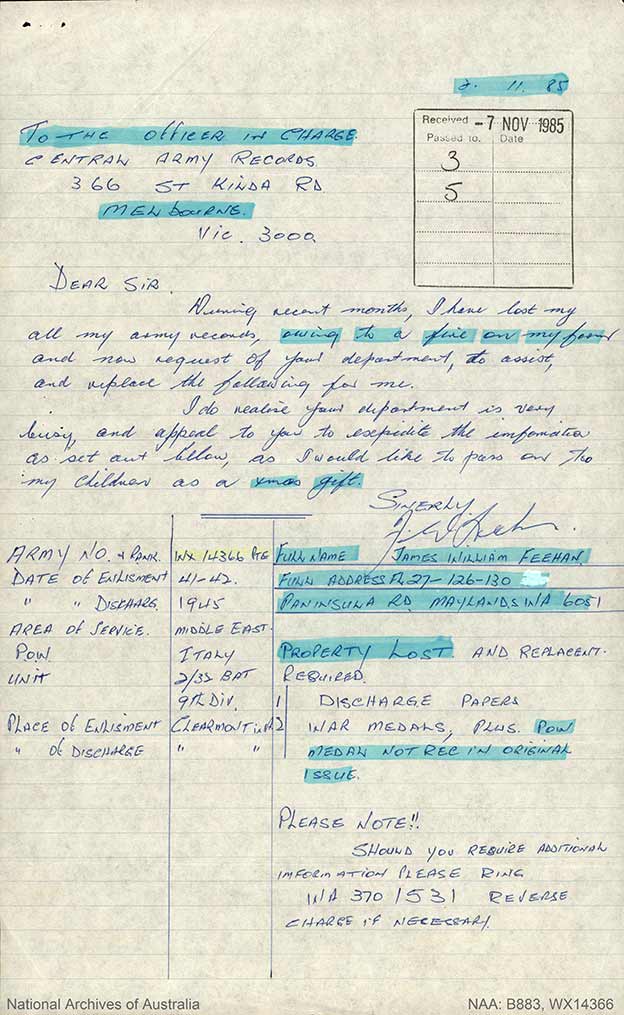 2. 11. 85
Received -7 NOV 1985
Passed to. Date
3
5
TO THE OFFICER IN CHARGE.
CENTRAL ARMY RECORDS
366 ST KINDA RD
MELBOURNE.
Vic. 3000.
DEAR SIR.
During recent months, I have lost my
all my army records, owing to a fire on my farm
and now request of your department, to assist,
and replace the following for me.
I do realise your department is very
busy, and appeal to you to expidite the information
as set out bellow, as I would like to pass on too
my children as a xmas gift.
SINERLY
ARMY NO. & RANK. WX 14366 PTE
DATE OF ENLISMENT 41-42.
" " DISCHARG. 1945
AREA OF SERVICE. MIDDLE EAST.
POW ITALY
UNIT 2/32 BAT
9TH DIV.
PLACE OF ENLISMENT CLEARMONT W.A
" OF DISCHARGE " "
FULL NAME JAMES WILLIAM FEEHAN.
FULL ADDRESS FL 27- 126-130
PANINSULA RD, MAYLANDS WA 6051
PROPERTY LOST. AND REPLACENT.
REQUIRED.
1 DISCHARGE PAPERS
2 WAR MEDALS, PLUS. POW
MEDAL NOT REC IN ORIGINAL
ISSUE.
PLEASE NOTE!!
SHOULD YOU REQUIRE ADDITIONAL
INFORMATION PLEASE RING
WA 370 1531 REVERSE
CHARGE IF NECESSARY.
National Archives of Australia
NAA: B883, WX14366